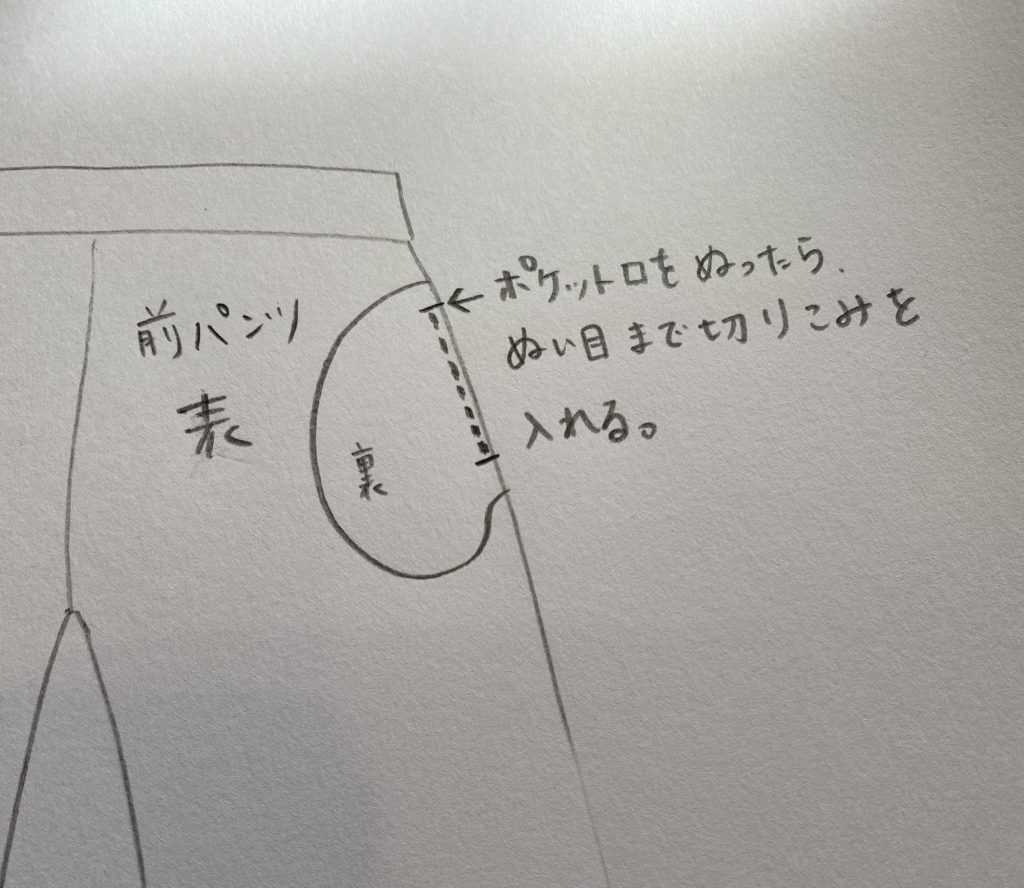 前パンツ
表
裏
ポケット口をぬったら、
ぬい目まで切りこみを
入れる。